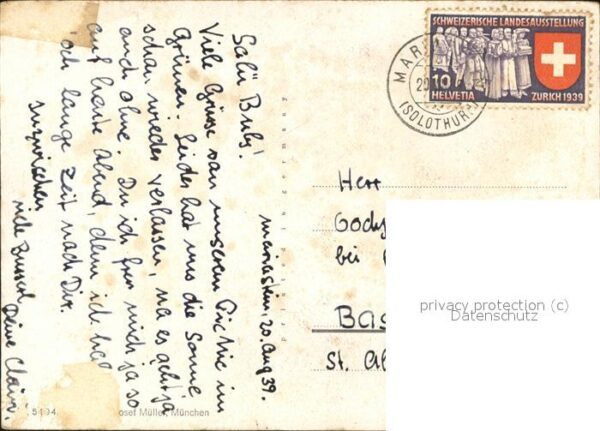 Mariastein, 20. Aug 39.
Salü Bubs!
Viele Grüsse von unserem Picknic im
Grünen. Leider hat uns die Sonne
schon wieder verlassen, na es geht ja
auch ohne. Du ich freu mich ja so
auf heute Abend, denn ich hab
'och lange Zeit nach Dir.
Inzwischen
viele Bussel,
Deine Clairi.
5194
osef Müller, München
SCHWEIZERISCHE LANDESAUSSTELLUNG
10
HELVETIA
ZURICH 1939
MAR
20
(SOLOTHUR
Herr
bei
Bas
St. Al
privacy protection (c)
Datenschutz